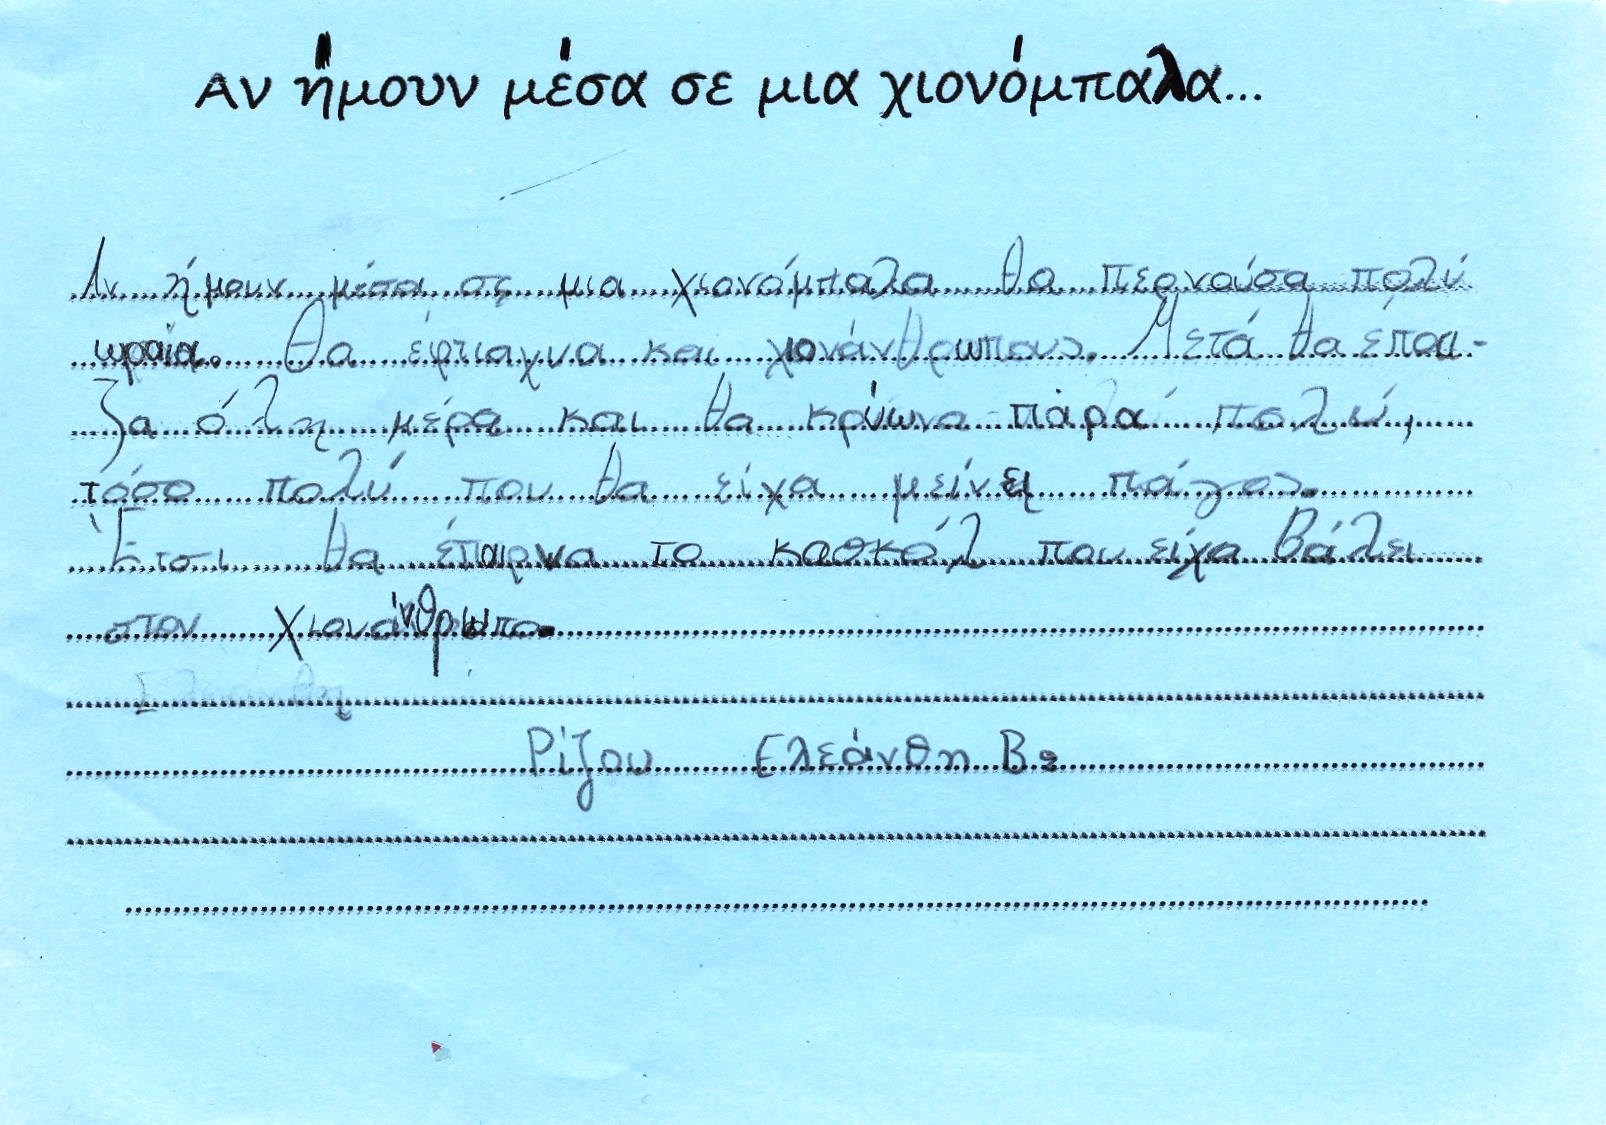 Αν ήμουν μέσα σε μια χιονόμπαλα...
Αν ήμουν μέσα σε μια χιονόμπαλα θα περνούσα πολύ
ωραία. Θα έφτιαχνα και χιονάνθρωπους. Μετά θα έπαι-
ζα όλη μέρα και θα κρύωνα πάρα πολύ,
τόσο πολύ που θα είχα μείνει πάγος.
Έτσι θα έπαιρνα το κασκόλ που είχα βάλει
στον χιονάνθρωπο.
Ρίζου Ελεάνθη Β2